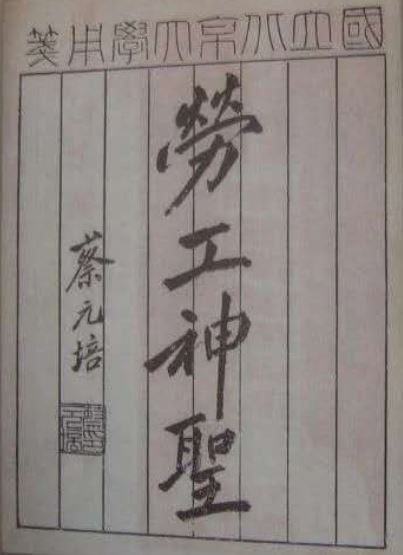 國立北京大學用箋
勞工神聖
蔡元培